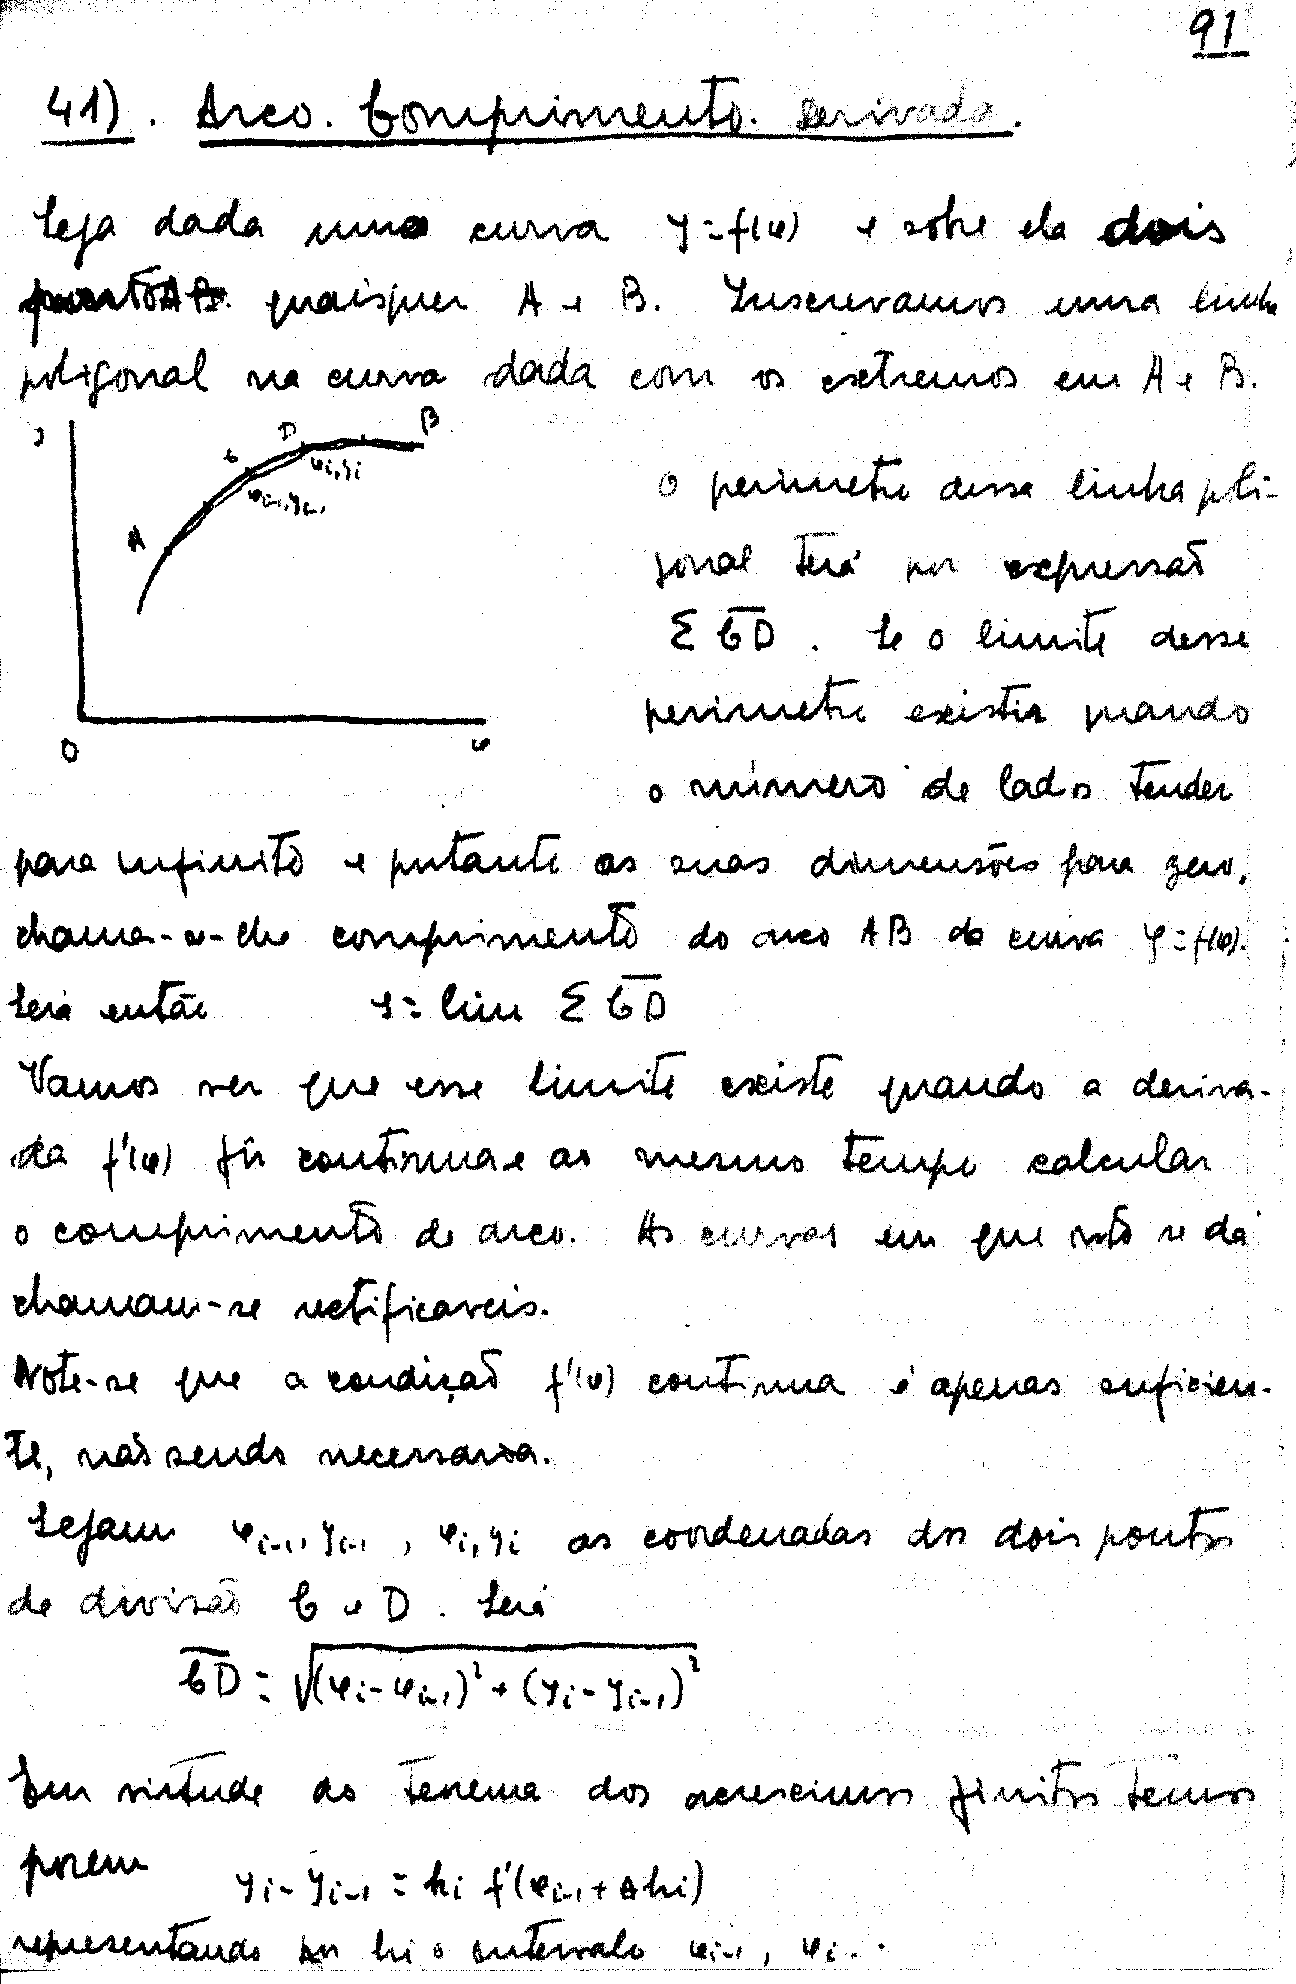 91
41). Arco. Comprimento. Derivada.
Seja dada uma curva y=f(x) e sobre ela dois
pontos quaisquer A e B. Inscrevamos uma linha
poligonal na curva dada com os extremos em A e B.
y
A
C
D
B
xi-1,yi-1
xi,yi
O
x
O perimetro dessa linha poli-
gonal terá por expressão
Σ CD. Se o limite desse
perimetro existir quando
o número de lados tender
para infinito e portanto as suas dimensões para zero,
chama-se-lhe comprimento do arco AB da curva y=f(x).
Será então s = lim Σ CD
Vamos ver que esse limite existe quando a deriva-
da f'(x) fôr continua e ao mesmo tempo calcular
o comprimento do arco. As curvas em que isto se dá
chamam-se rectificaveis.
Note-se que a condição f'(x) continua é apenas suficien-
te, não sendo necessaria.
Sejam xi-1, yi-1, xi, yi as coordenadas dos dois pontos
de divisão C e D. Será
CD = √(xi-xi-1)² + (yi-yi-1)²
Em virtude do teorema dos acrescimos finitos temos
porem yi-yi-1 = hi f'(xi-1+θhi)
representando por hi o intervalo xi-1, xi.